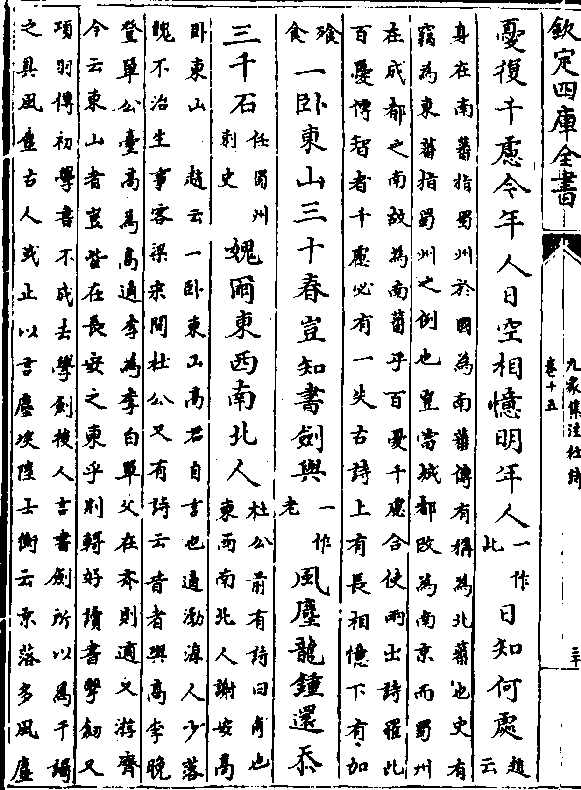 欽定四庫全書
九家集注杜詩
卷十五
二十
憂復千慮今年人日空相憶明年人一作此日知何處趙云
身在南蕃指蜀州於國為南蕃傳有稱為北蕃也史有
竊為東蕃指蜀州之例也豈當城都改為南京而蜀州
在成都之南故為南蕃乎百憂千慮合使兩出詩罹此
百憂博智者千慮必有一失古詩上有長相憶下有加
飱食一卧東山三十春豈知書劍與一作老風塵龍鍾還忝
三千石任蜀州刺史愧爾東西南北人杜公前有詩曰甫也東西南北人謝安高
卧東山 趙云一卧東山高君自言也適渤海人少落
魄不治生事客梁宋間杜公又有詩云昔者與高李晚
登單公臺高為高適李為李白單父在齊則適又游齊
今云東山者豈在長安之東乎則好讀書學劍又
項羽傳初學書不成去學劍人言書劍所以為干謁
之具風塵古人或止以言塵埃陸士衡云京落多風塵